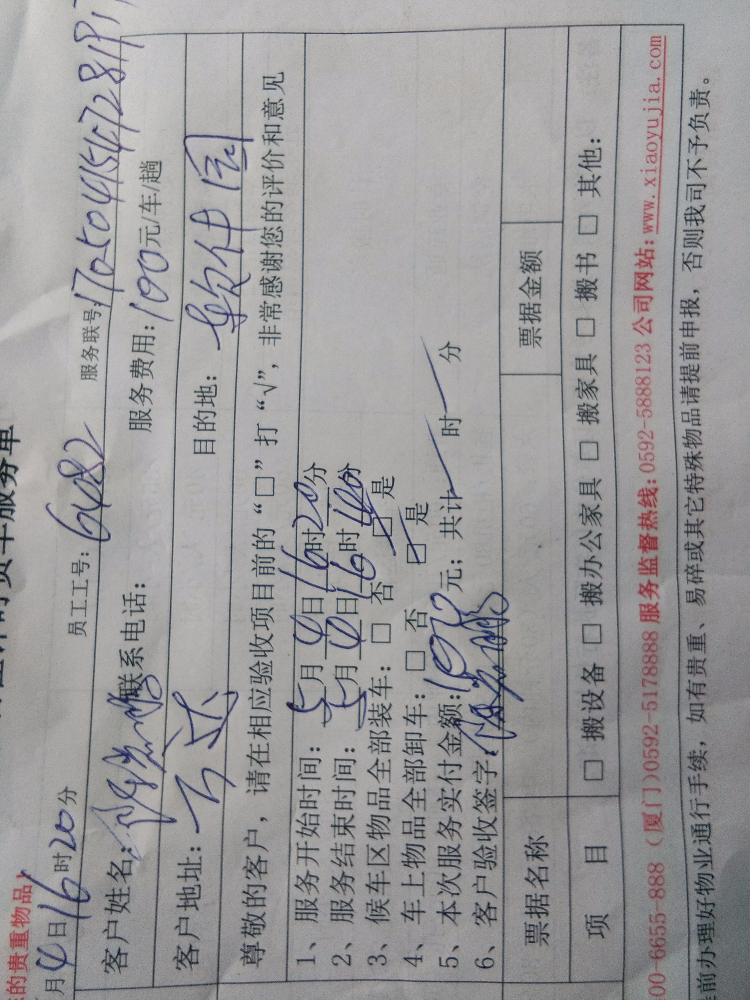 的贵重物品)
货车服务单
月4日16时20分 员工工号：6482 服务联号：
客户姓名： 联系电话： 服务费用：100元/车/趟
客户地址：万达 目的地：软件园
尊敬的客户，请在相应验收项目前的“□”打“√”，非常感谢您的评价和意见
1、服务开始时间：5月4日16时20分
2、服务结束时间：5月4日16时40分
3、候车区物品全部装车：□否 □是
4、车上物品全部卸车：□否 □是
5、本次服务实付金额：元；共计 时 分
6、客户验收签字：
票据名称 票据金额
项 目 □搬设备 □搬办公家具 □搬家具 □搬书 □其他：
00-6655-888 (厦门)0592-5178888 服务监督热线:0592-5888123 公司网站:www.xiaoyujia.com
前办理好物业通行手续，如有贵重、易碎或其它特殊物品请提前申报，否则我司不予负责。